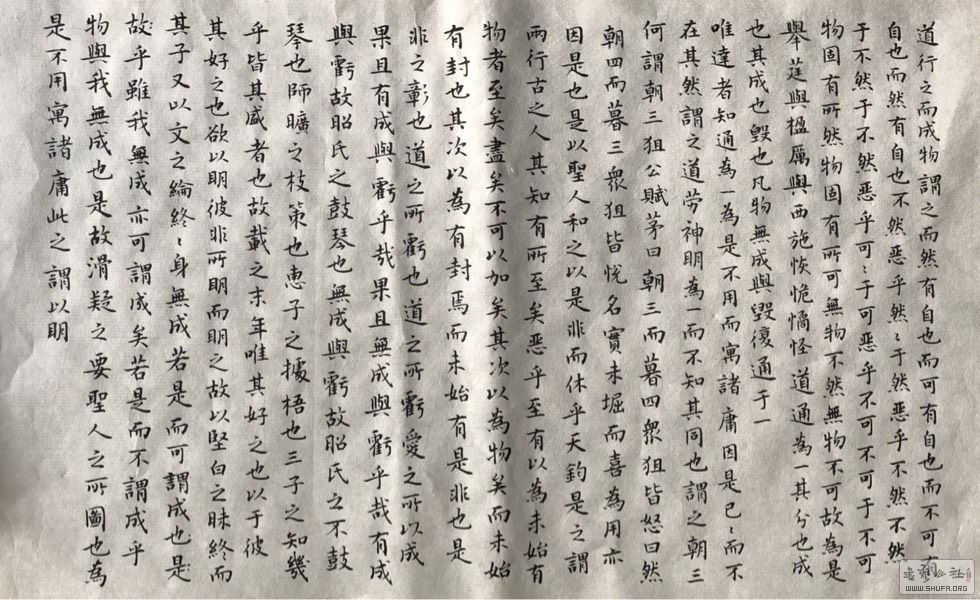 道行之而成物謂之而然有自也而可有自也而不可有
自也而然有自也不然恶乎然〻于然恶乎不然不然
于不然于不然恶乎可〻于可恶乎不可不可于不可
物固有所然物固有所可無物不然無物不可故為是
舉莛與楹厲與西施恢恑憰怪道通為一其兮也成
也其成也毀也凡物無成與毀復通于一
唯達者知通為一為是不用而寓諸庸因是已〻而不
在其然謂之道劳神明為一而不知其同也謂之朝三
何謂朝三狙公賦茅曰朝三而暮四衆狙皆怒曰然
朝四而暮三衆狙皆悅名實未堀而喜為用亦
因是也是以聖人和之以是非而休乎天鈞是之謂
兩行古之人其知有所至矣恶乎至有以為未始有
物者至矣盡矣不可以加矣其次以為物矣而未始
有封也其次以為有封焉而未始有是非也是
非之彰也道之所虧也道之所虧愛之所以成
果且有成與虧乎哉果且無成與虧乎哉有成
與虧故昭氏之鼓琴也無成與虧故昭氏之不鼓
琴也師曠之枝策也惠子之據梧也三子之知幾
乎皆其盛者也故載之末年唯其好之也以于彼
其好之也欲以明彼非所明而明之故以堅白之昧終而
其子又以文之綸終〻身無成若是而可謂成也是
故乎雖我無成亦可謂成矣若是而不謂成乎
物與我無成也是故滑疑之要聖人之所圖也為
是不用寓諸庸此之謂以明
WWW.SHUFA.ORG